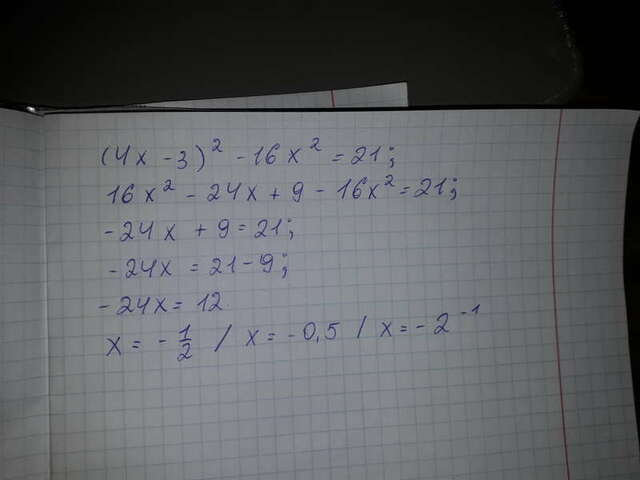 (4x - 3)² - 16x² = 21;
16x² - 24x + 9 - 16x² = 21;
-24x + 9 = 21;
-24x = 21 - 9;
-24x = 12
x = -1/2 / x = -0,5 / x = -2⁻¹